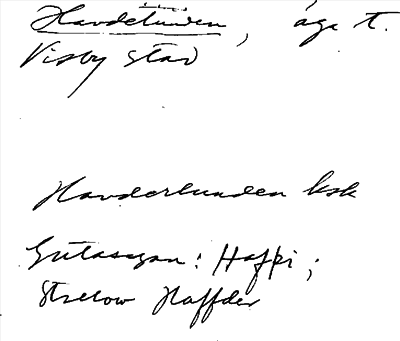 Havdelunden, äga t.
Visby stad
Havderlunden ksk
Gutasagan: Hafþi;
Strelow Haffder